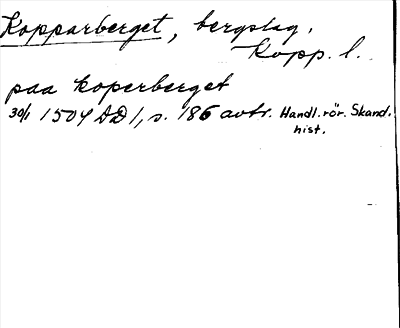 Kopparberget, bergslag.
Kopp. l.
paa koperberget
30/1 1504 DD 1, s. 186 avtr. Handl. rör. Skand.
hist.